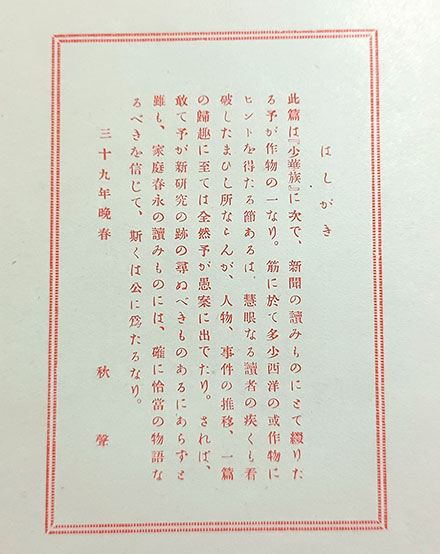 はしがき
此篇は『少華族』に次で、新聞の讀みものにとて綴りた
る予が作物の一なり。筋に於て多少西洋の或作物に
ヒントを得たる節あるは、慧眼なる讀者の疾くも看
破したまひし所ならんが、人物、事件の推移、一篇
の歸趣に至ては全然予が愚案に出でたり。されば、
敢て予が新研究の跡の尋ぬべきものあるにあらずと
雖も、家庭春永の讀みものには、確に恰當の物語な
るべきを信じて、斯くは公に爲たるなり。
三十九年晩春
秋聲